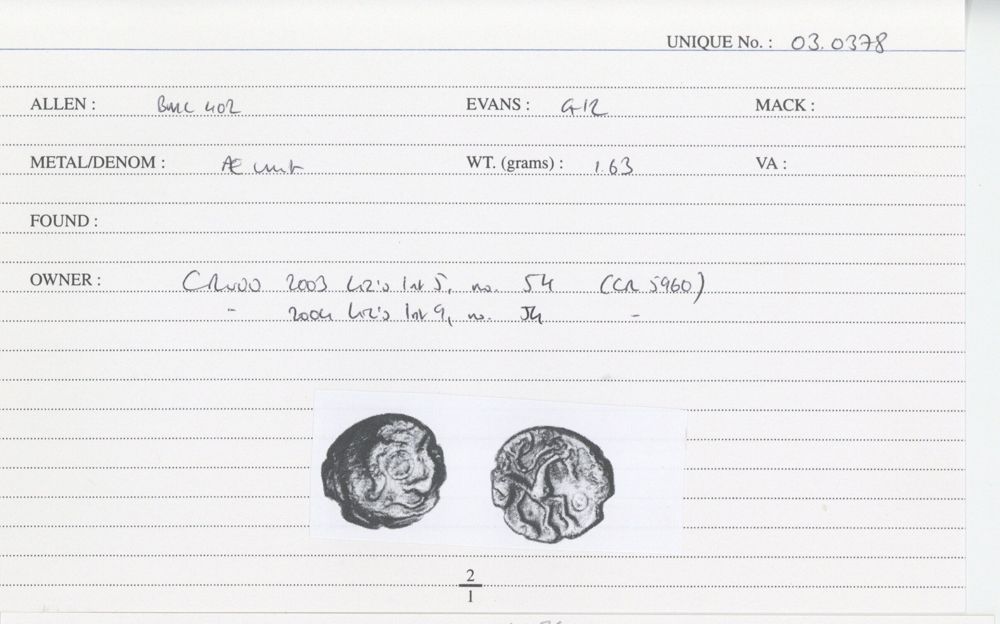 UNIQUE No. : 03.0378
ALLEN : BMC 402 EVANS : G12 MACK :
METAL/DENOM : Æ unit WT. (grams) : 1.63 VA :
FOUND :
OWNER : 2003 Liz's list 5, no. 54 (CR 5960)
" 2004 Liz's list 9, no. 54 "
2
1